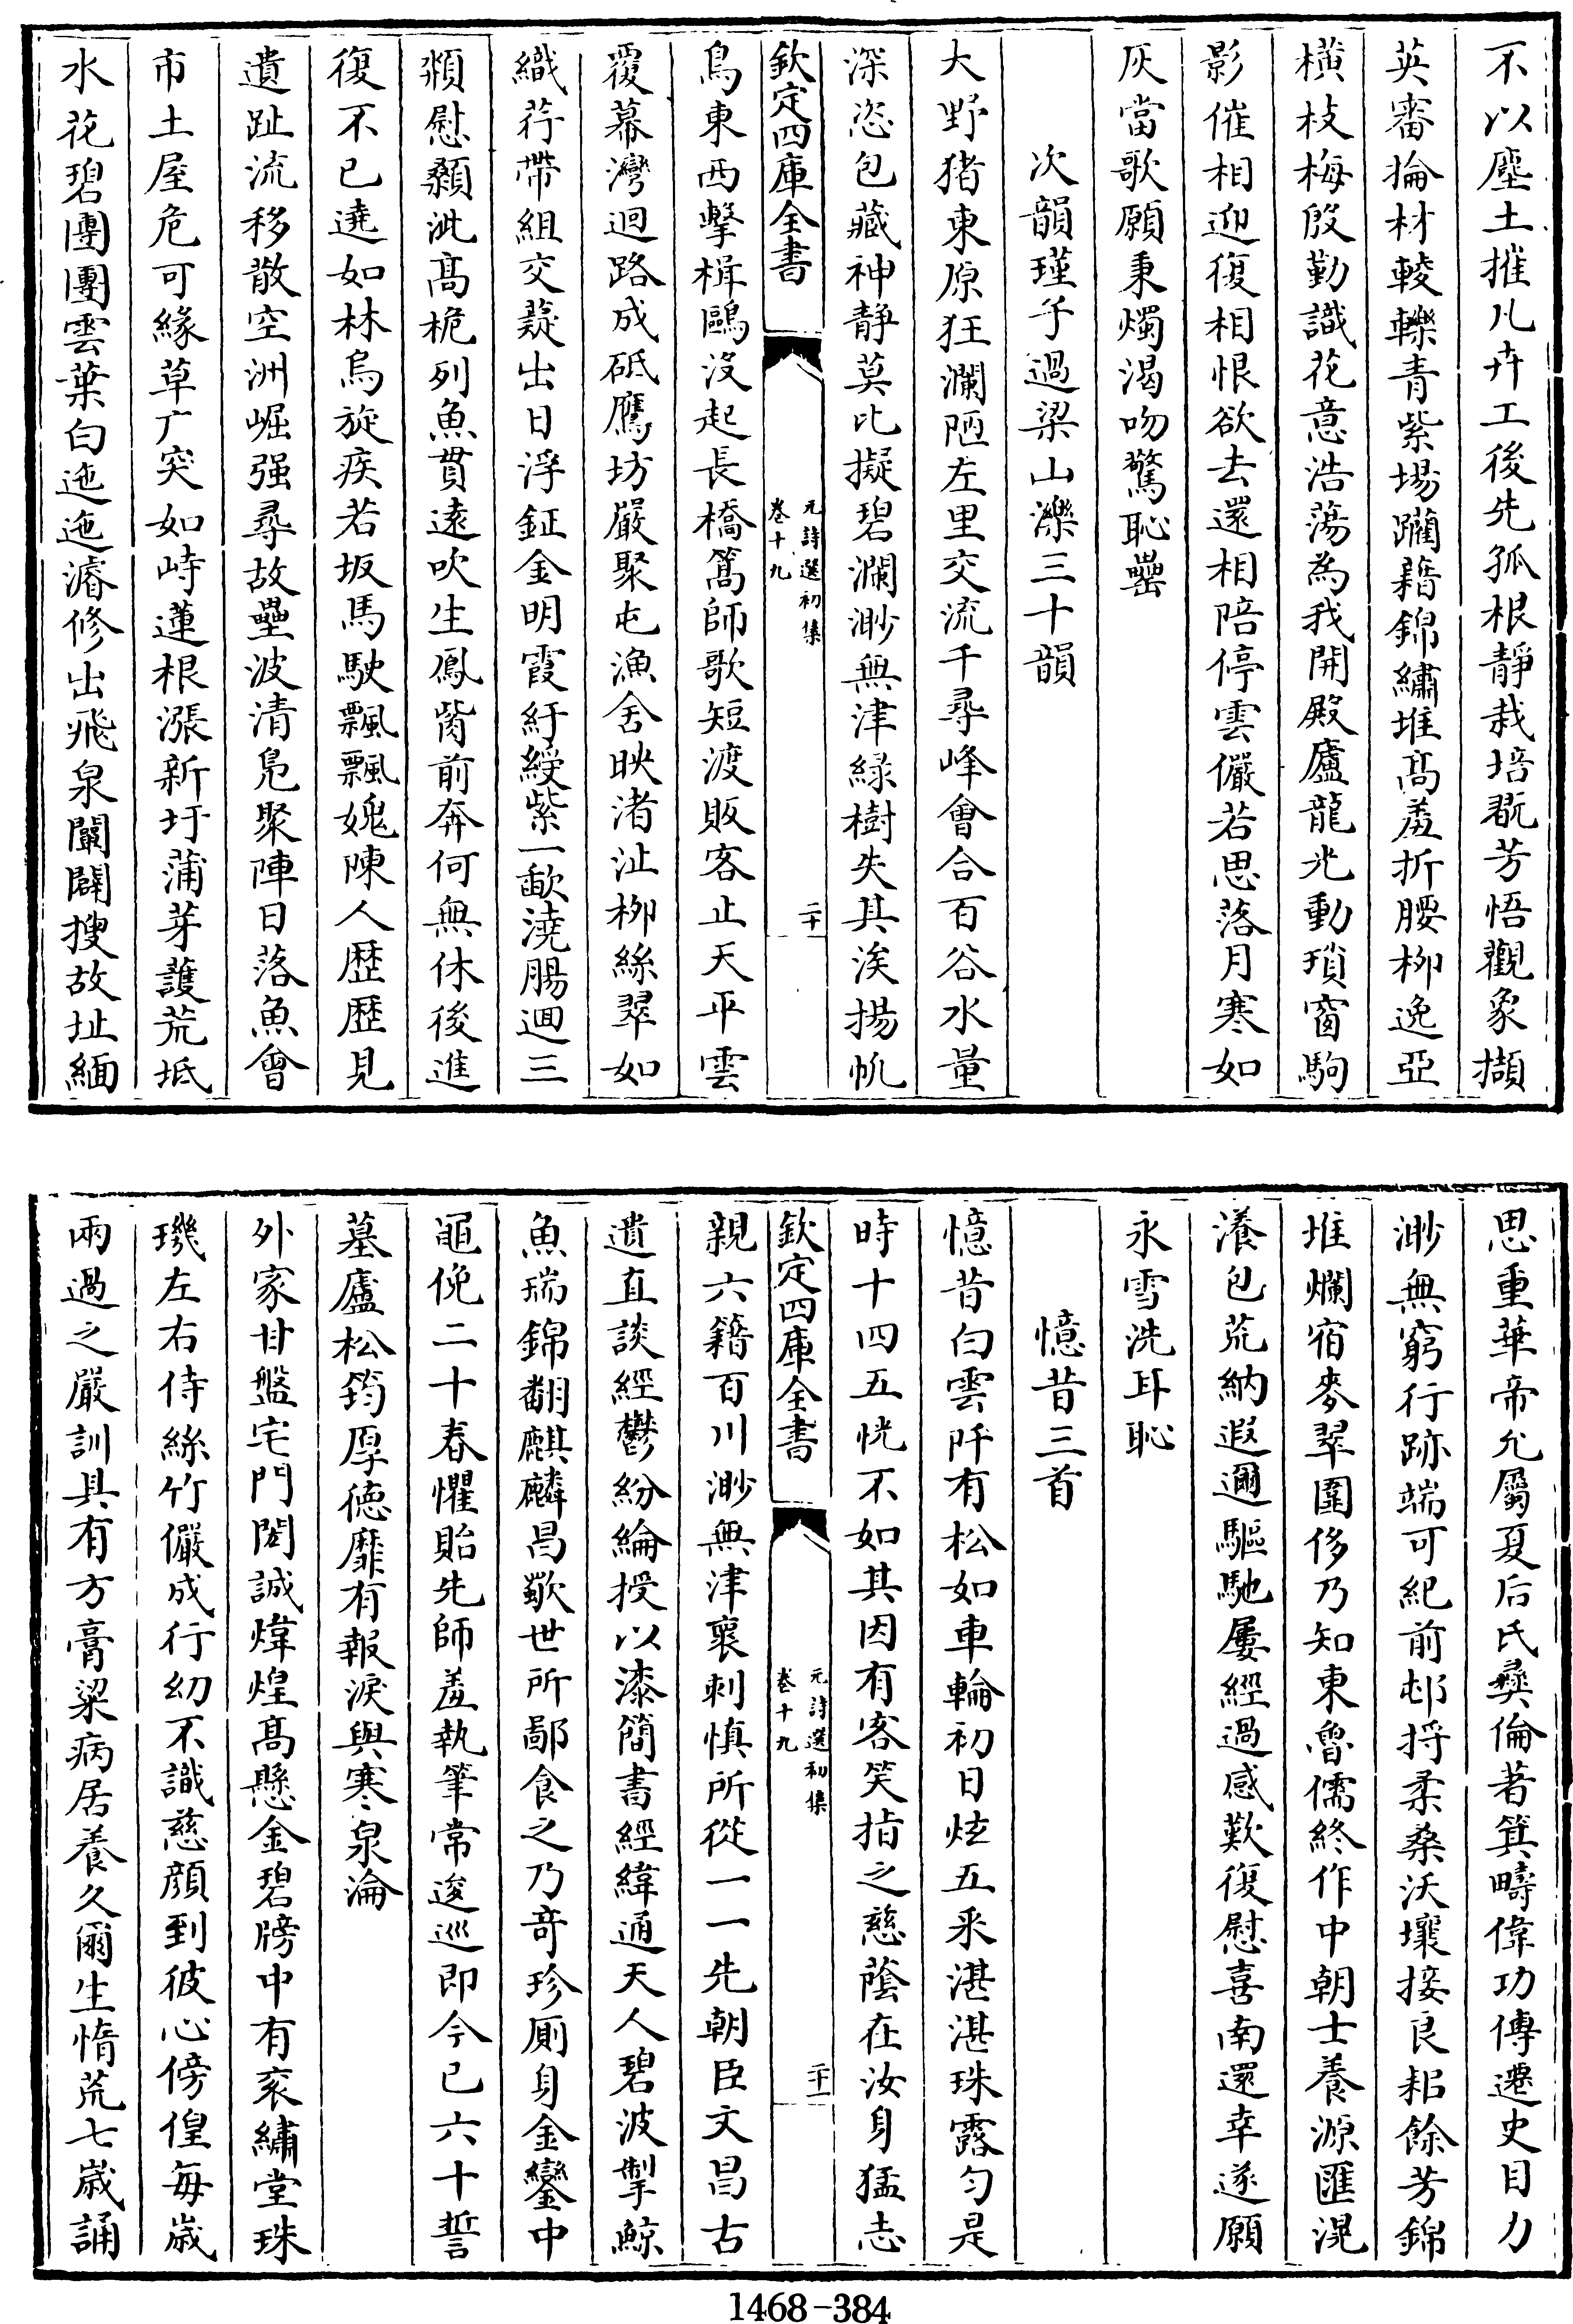 不以塵土摧凡卉工後先孤根靜栽培翫芳悟觀象擷
英審掄材輘轢青紫場躪藉錦繡堆髙羞折腰柳逸亞
横枝梅殷勤識花意浩蕩為我開殿廬龍光動瑣窗駒
影催相迎復相恨欲去還相陪停雲儼若思落月寒如
灰當歌願秉燭渴吻驚恥罍
次韻瑾子過梁山濼三十韻
大野猪東原狂瀾陋左里交流千尋峰會合百谷水量
深恣包藏神静莫比擬碧瀾渺無津緑樹失其涘揚帆
欽定四庫全書
元詩選初集
卷十九
二十
鳥東西擊楫鷗沒起長橋篙師歌短渡販客止天平雲
覆幕灣迴路成砥鷹坊嚴聚屯漁舍映渚沚柳絲翠如
織荇帶組交蕤出日浮鉦金明霞紆綬紫一歃澆腸迴三
頮慰顙泚髙桅列魚貫遠吹生鳳觜前奔何無休後進
復不已遶如林烏旋疾若坂馬駛飄飄媿陳人歴歴見
遺趾流移散空洲崛强尋故壘波清凫聚陣日落魚㑹
市土屋危可緣草广突如峙蓮根漲新圩蒲芽護荒坻
水花碧團團雲葉白迤迤濬修出飛泉闌闢搜故址緬
思重華帝允屬夏后氏彝倫著箕疇偉功傳遷史目力
渺無窮行跡端可紀前邨捋柔桑沃壤接良耜餘芳錦
堆爛宿麥翠圍侈乃知東魯儒終作中朝士養源匯滉
瀁包荒納遐邇驅馳屢經過感歎復慰喜南還幸遂願
永雪洗耳恥
憶昔三首
憶昔白雲阡有松如車輪初日炫五釆湛湛珠露匀是
時十四五恍不如其因有客笑指之慈蔭在汝身猛志
欽定四庫全書
元詩選初集
卷十九
二十一
親六籍百川渺無津襄刺慎所從一一先朝臣文昌古
遺直談經鬱紛綸授以漆簡書經緯通天人碧波掣鯨
魚瑞錦翻麒麟昌歜世所鄙食之乃竒珍厠身金鑾中
黽俛二十春懼貽先師羞執筆常逡巡即今已六十誓
墓廬松筠厚德靡有報淚與寒泉淪
外家甘盤宅門閎誠煒煌髙懸金碧牓中有衮繡堂珠
璣左右侍絲竹儼成行幼不識慈顔到彼心傍偟每歳
兩過之嚴訓具有方膏粱病居養久爾生惰荒七歳誦
1468-384